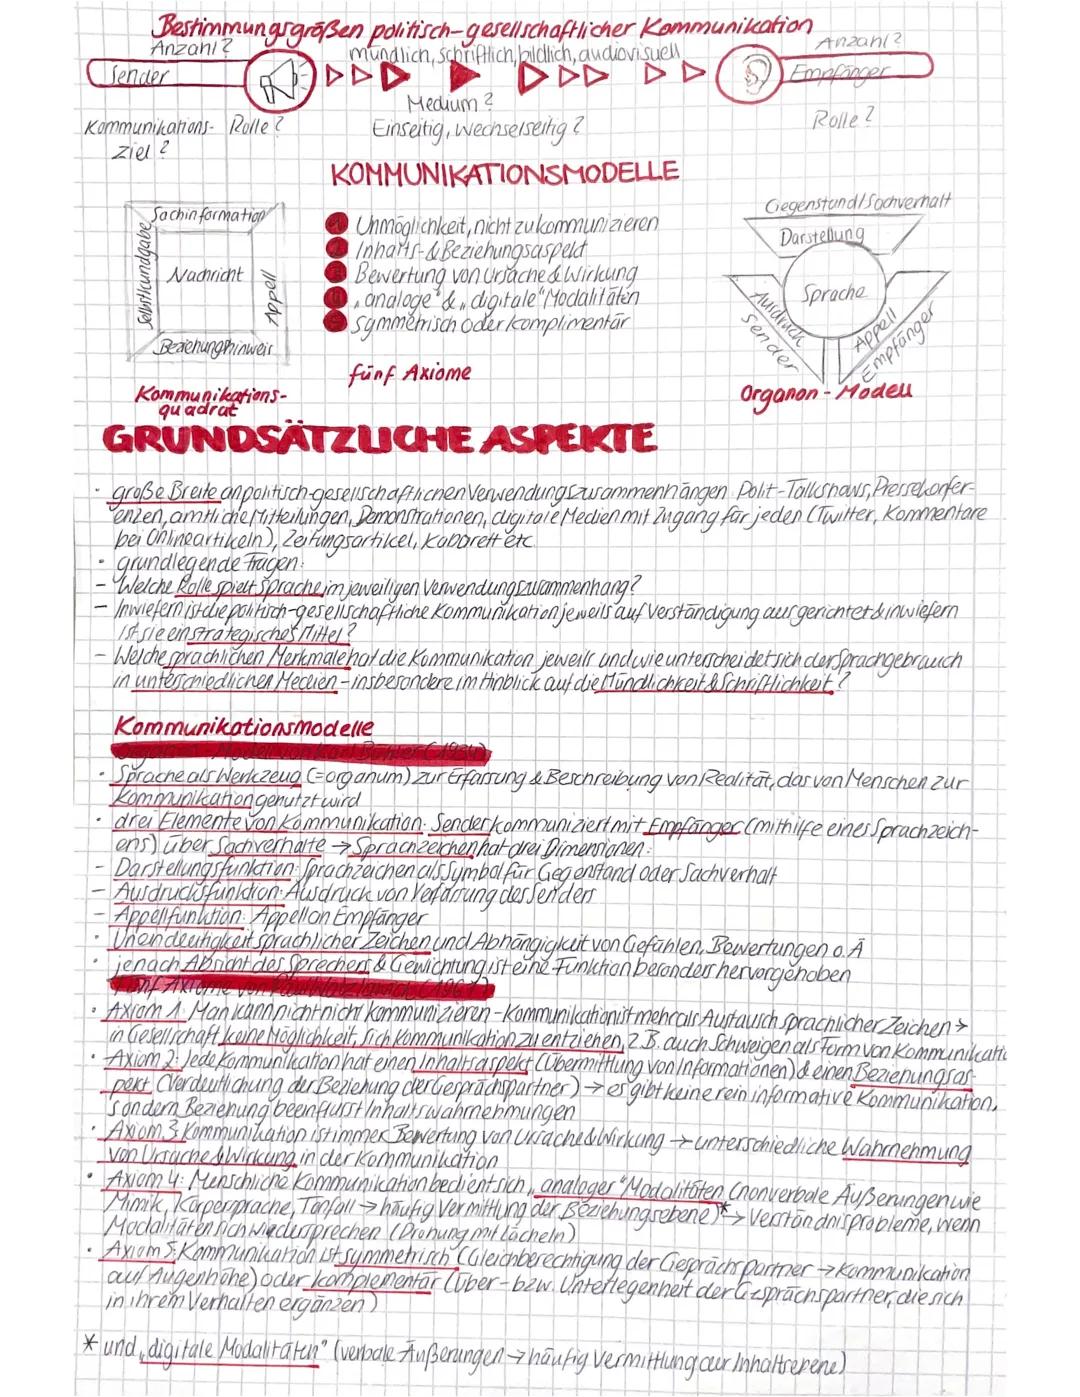 Bestimmungsgrößen politisch-gesellschaftlicher Kommunikation
Anzahl?
mündlich, schriftlich, bildlich, audiovisuell
Anzahl?
Sender
Empfänger
Medium?
Kommunikations-
Ziel?
Rolle?
Einseitig, wechselseitig?
Rolle?
KOMMUNIKATIONSMODELLE
Sachinformation
Selbstkundgabe
Nachricht
Appell
Beziehunghinweis
Kommunikations-
quadrat
Unmöglichkeit, nicht zu kommunizieren
Inhalts- & Beziehungsaspekt
Bewertung von Ursache & Wirkung
„analoge" & „digitale" Modalitäten
symmetrisch oder komplimentär
fünf Axiome
Gegenstand/Sachverhalt
Darstellung
Sprache
Ausdruck
Sender
Appell
Empfänger
Organon-Modell
GRUNDSÄTZLICHE ASPEKTE
• große Breite an politisch-gesellschaftlichen Verwendungszusammenhängen: Polit-Talkshows, Pressekonfer-
enzen, amtliche Mitteilungen, Demonstrationen, digitale Medien mit Zugang für jeden (Twitter, Kommentare
bei Onlineartikeln), Zeitungsartikel, Kabarett etc.
• grundlegende Fragen:
– Welche Rolle spielt Sprache im jeweiligen Verwendungszusammenhang?
– Inwiefern ist die politisch-gesellschaftliche Kommunikation jeweils auf Verständigung ausgerichtet & inwiefern
ist sie ein strategisches Mittel?
– Welche sprachlichen Merkmale hat die Kommunikation jeweils und wie unterscheidet sich der Sprachgebrauch
in unterschiedlichen Medien – insbesondere im Hinblick auf die Mündlichkeit & Schriftlichkeit?
Kommunikationsmodelle
Organon-Modell von Karl Bühler (1934)
• Sprache als Werkzeug (=organum) zur Erfassung & Beschreibung von Realität, das von Menschen zur
Kommunikation genutzt wird
• drei Elemente von Kommunikation: Sender kommuniziert mit Empfänger (mithilfe eines Sprachzeich-
ens) über Sachverhalte → Sprachzeichen hat drei Dimensionen:
– Darstellungsfunktion: Sprachzeichen als Symbol für Gegenstand oder Sachverhalt
– Ausdrucksfunktion: Ausdruck von Verfassung des Senders
– Appellfunktion: Appell an Empfänger
• Uneindeutigkeit sprachlicher Zeichen und Abhängigkeit von Gefühlen, Bewertungen o. Ä
• je nach Absicht des Sprechers & Gewichtung ist eine Funktion besonders hervorgehoben
Fünf Axiome von Paul Watzlawick (1967)
• Axiom 1: Man kann nicht nicht kommunizieren – Kommunikation ist mehr als Austausch sprachlicher Zeichen →
in Gesellschaft keine Möglichkeit, sich Kommunikation zu entziehen, z.B. auch Schweigen als Form von Kommunikati
• Axiom 2: Jede Kommunikation hat einen Inhaltsaspekt (Übermittlung von Informationen) & einen Beziehungsas-
pekt (Verdeutlichung der Beziehung der Gesprächspartner) → es gibt keine rein informative Kommunikation,
sondern Beziehung beeinflusst Inhaltswahrnehmungen
• Axiom 3: Kommunikation ist immer Bewertung von Ursache & Wirkung → unterschiedliche Wahrnehmung
von Ursache & Wirkung in der Kommunikation
• Axiom 4: Menschliche Kommunikation bedient sich „analoger" Modalitäten (nonverbale Äußerungen wie
Mimik, Körpersprache, Tonfall → häufig Vermittlung der Beziehungsebene)* → Verständnisprobleme, wenn
Modalitäten sich wiedersprechen (Drohung mit Lächeln)
• Axiom 5: Kommunikation ist symmetrisch (Gleichberechtigung der Gesprächspartner → Kommunikation
auf Augenhöhe) oder komplementär (Über- bzw. Unterlegenheit der Gesprächspartner, die sich
in ihrem Verhalten ergänzen)
* und „digitale Modalitäten" (verbale Äußerungen → häufig Vermittlung der Inhaltsebene)